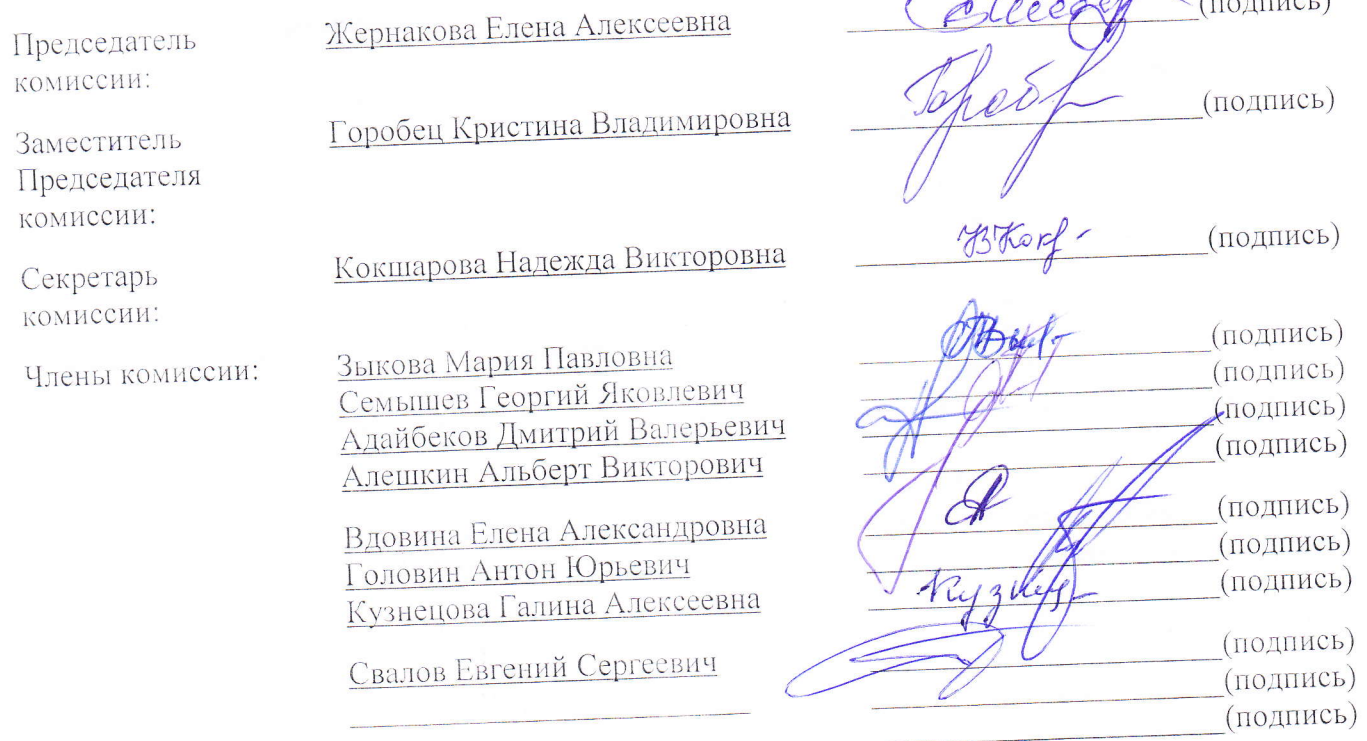 Председатель комиссии: Жернакова Елена Алексеевна (подпись)
Заместитель Председателя комиссии: Горобец Кристина Владимировна (подпись)
Секретарь комиссии: Кокшарова Надежда Викторовна (подпись)
Члены комиссии: Зыкова Мария Павловна (подпись)
Семышев Георгий Яковлевич (подпись)
Адайбеков Дмитрий Валерьевич (подпись)
Алешкин Альберт Викторович (подпись)
Вдовина Елена Александровна (подпись)
Головин Антон Юрьевич (подпись)
Кузнецова Галина Алексеевна (подпись)
Свалов Евгений Сергеевич (подпись)
(подпись)
(подпись)